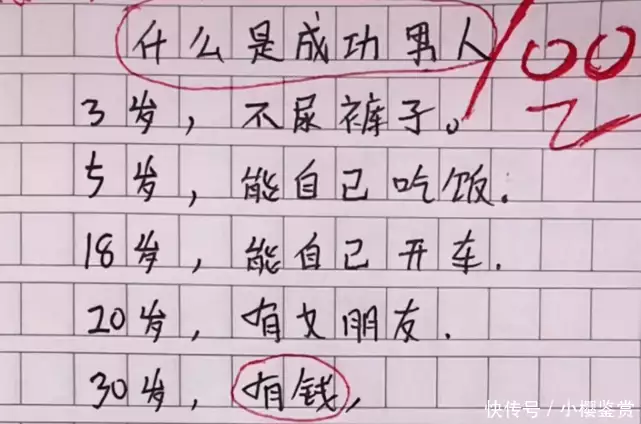 什么是成功男人
100
3岁，不尿裤子。
5岁，能自己吃饭.
18岁，能自己开车.
20岁，有女朋友.
30岁，有钱，
快传号／小樱鉴赏